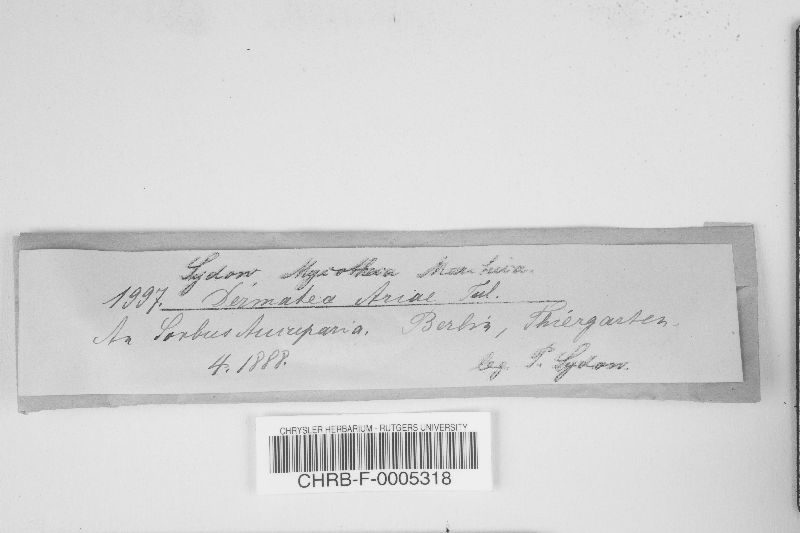 Sydow Mycotheca Marchica.
1997. Dermatea Ariae Tul.
An Sorbus Aucuparia. Berlin, Thiergarten.
4. 1888. leg. P. Sydow.
CHRYSLER HERBARIUM - RUTGERS UNIVERSITY
CHRB-F-0005318